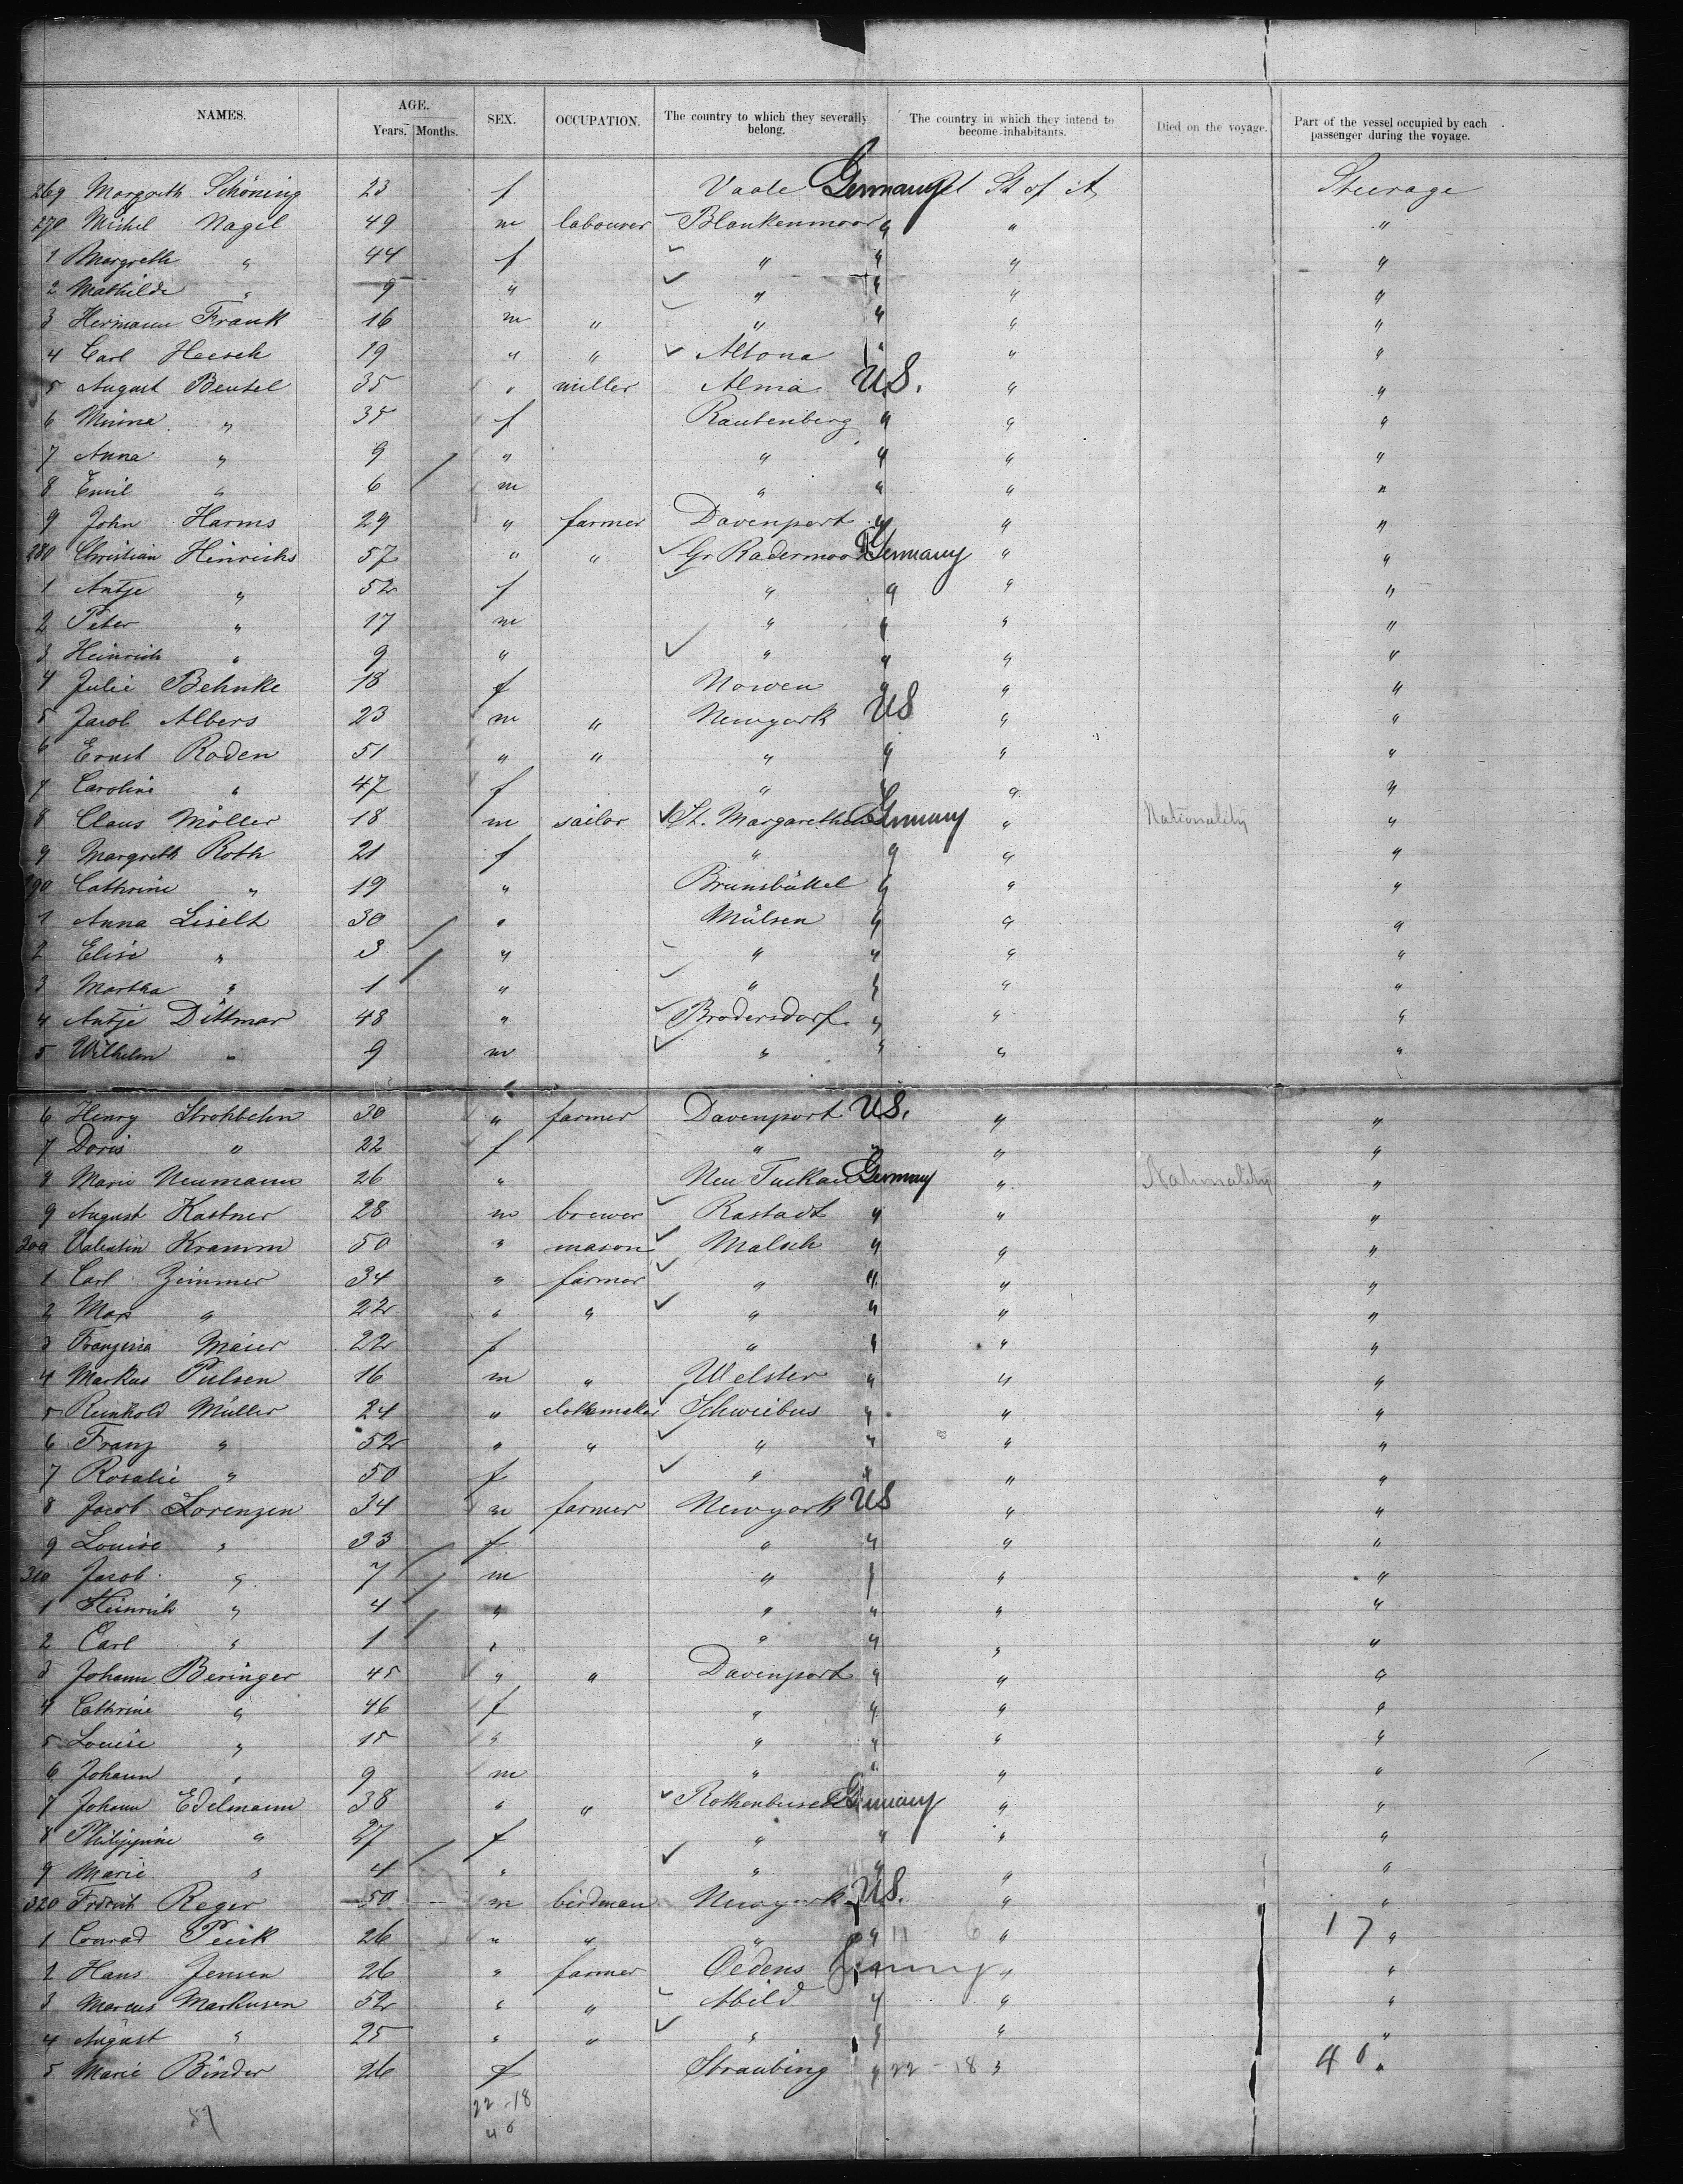 NAMES. AGE. Years. Months. SEX. OCCUPATION. The country to which they severally belong. The country in which they intend to become inhabitants. Died on the voyage. Part of the vessel occupied by each passenger during the voyage.
269 Margreth Schöning 23 f Vaale Germany St of A Steerage
270 Michel Nagel 49 m labourer Blankenmoor " " "
1 Margreth " 44 f " " " "
2 Mathilde " 9 " " " " "
3 Hermann Frank 16 m " " " " "
4 Carl Heesch 19 " " Altona " " "
5 August Beutel 35 " miller Alma US. " "
6 Minna " 35 f Rautenberg " " "
7 Anna " 9 " " " " "
8 Emil " 6 m " " " "
9 John Harms 29 " farmer Davenport " " "
280 Christian Hinrichs 57 " " Gr Radermoor Germany " "
1 Antje " 52 f " " " "
2 Peter " 17 m " " " "
3 Heinrich " 9 " " " " "
4 Julie Behnke 18 f Nowen " " "
5 Jacob Albers 23 m " Newyork US " "
6 Ernst Roden 51 " " " " " "
7 Caroline " 47 f " " " "
8 Claus Möller 18 m sailor St. Margarethen Germany " Nationality "
9 Margreth Roth 21 f " " " "
290 Cathrine " 19 " Brunsbüttel " " "
1 Anna Liselt 30 " Mülsen " " "
2 Elise " 3 " " " " "
3 Martha " 1 " " " " "
4 Antje Dittmar 48 " Brodersdorf " " "
5 Wilhelm " 9 m " " " "
6 Henry Strohbehn 30 " farmer Davenport US. " "
7 Doris " 22 f " " " "
8 Marie Neumann 26 " Neu Tuckau Germany " Nationality "
9 August Kastner 28 m brewer Rastadt " " "
300 Valentin Kramm 50 " mason Malsch " " "
1 Carl Zimmer 34 " farmer " " " "
2 Max " 22 " " " " " "
3 Maier 22 f " " " "
4 Markus Pulsen 16 m " Welster " " "
5 Reinhold Müller 24 " clothmaker Schwiebus " " "
6 Franz " 52 " " " " " "
7 Rosalie " 50 f " " " "
8 Jacob Lorenzen 34 m farmer Newyork US " "
9 Louise " 33 f " " " "
310 Jacob " 7 m " " " "
1 Heinrich " 4 " " " " "
2 Carl " 1 " " " " "
3 Johann Beringer 45 " " Davenport " " "
4 Cathrine " 46 f " " " "
5 Louise " 15 " " " " "
6 Johann " 9 m " " " "
7 Johann Edelmann 38 " " Germany " "
8 Philippine " 27 f " " " "
9 Marie " 4 " " " " "
320 Reger 50 m birdman Newyork US. " "
1 Conrad Peik 26 " " " " 11 6 " 17 "
2 Hans Jensen 26 " farmer Oedens Germany " "
3 Marcus Markusen 52 " " Abild " " "
4 August " 25 " " " " " "
5 Marie Binder 26 f Straubing " 22 - 18 " 40 "
22 - 18
40